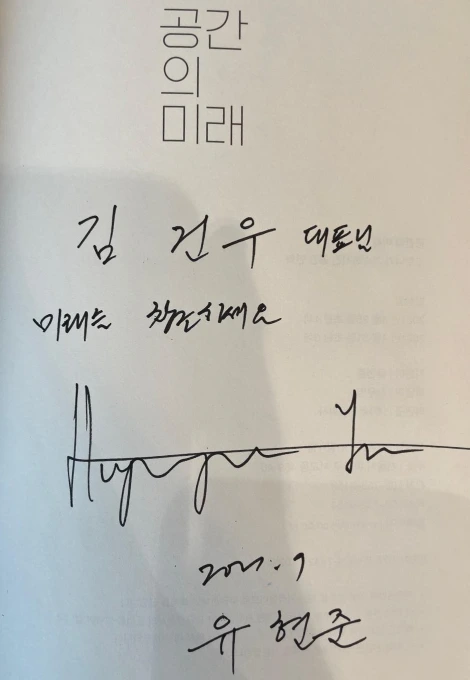 공간
의
미래
김 건우 대표님
미래를 창조하세요
Hyunjoon Yoo
유현준